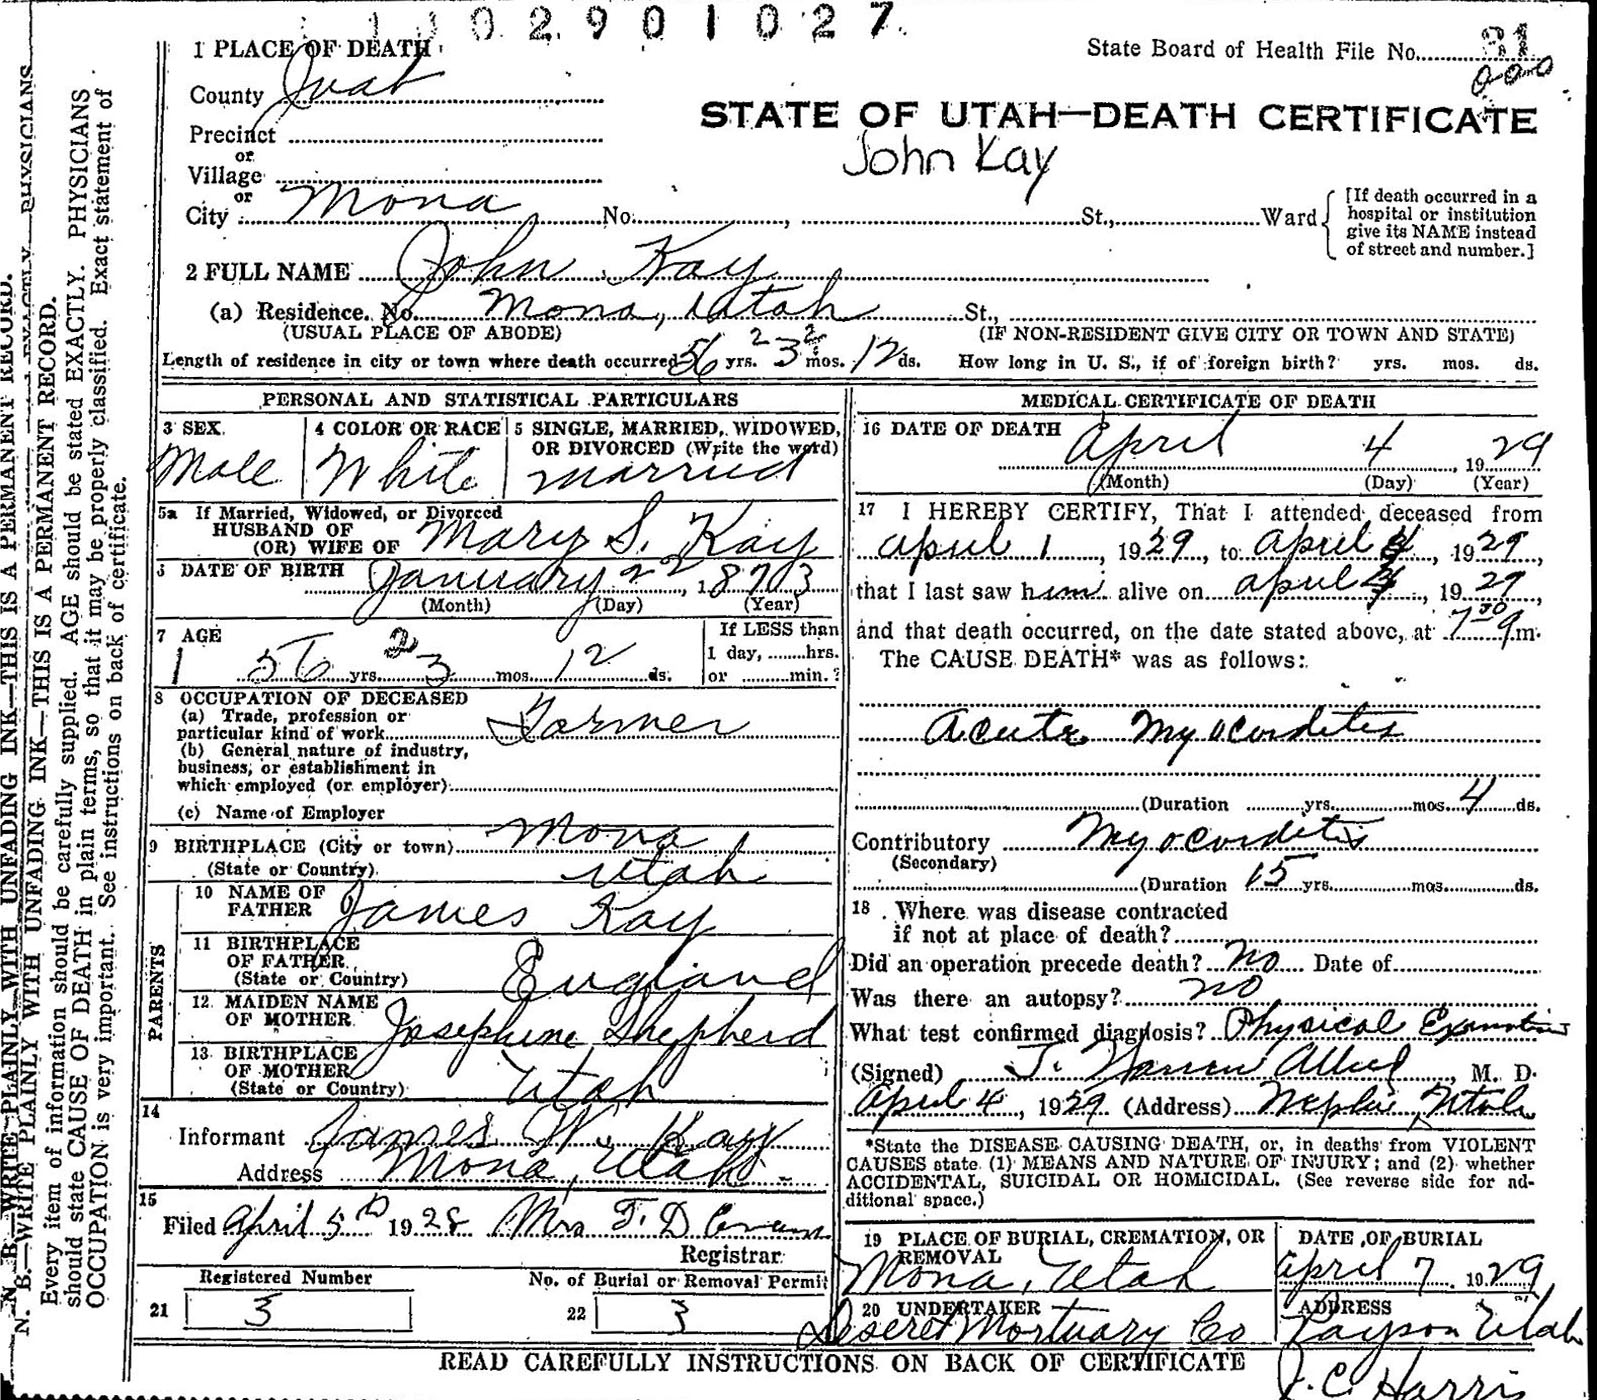 1 1 0 2 9 0 1 0 2 7
State Board of Health File No. 81
000
1 PLACE OF DEATH
County Juab
STATE OF UTAH—DEATH CERTIFICATE
Precinct
or
John Kay
Village
or
City Mona No. , St., Ward
[If death occurred in a
hospital or institution
give its NAME instead
of street and number.]
2 FULL NAME John Kay
(a) Residence. No. Mona, Utah St.,
(USUAL PLACE OF ABODE) (IF NON-RESIDENT GIVE CITY OR TOWN AND STATE)
Length of residence in city or town where death occurred 56 yrs. 2 3 2 mos. 12 ds. How long in U. S., if of foreign birth? yrs. mos. ds.
PERSONAL AND STATISTICAL PARTICULARS
3 SEX
Male
4 COLOR OR RACE
White
5 SINGLE, MARRIED, WIDOWED,
OR DIVORCED (Write the word)
married
5a If Married, Widowed, or Divorced
HUSBAND OF
(OR) WIFE OF Mary S. Kay
6 DATE OF BIRTH January 22, 1873
(Month) (Day) (Year)
7 AGE
56 yrs. 2 3 mos. 12 ds.
If LESS than
1 day, ........hrs.
or ..........min.?
8 OCCUPATION OF DECEASED
(a) Trade, profession or
particular kind of work Farmer
(b) General nature of industry,
business, or establishment in
which employed (or employer)
(c) Name of Employer
9 BIRTHPLACE (City or town) Mona
(State or Country) Utah
PARENTS
10 NAME OF
FATHER James Kay
11 BIRTHPLACE
OF FATHER
(State or Country) England
12 MAIDEN NAME
OF MOTHER Josephine Shepherd
13 BIRTHPLACE
OF MOTHER
(State or Country) Utah
14
Informant James W. Kay
Address Mona, Utah
15
Filed April 5th 1928 Mrs T. D. Evans
Registrar
Registered Number
21 3
No. of Burial or Removal Permit
22 3
MEDICAL CERTIFICATE OF DEATH
16 DATE OF DEATH April 4, 1929
(Month) (Day) (Year)
17 I HEREBY CERTIFY, That I attended deceased from
April 1, 1929, to April 4, 1929
that I last saw him alive on April, 1929
and that death occurred, on the date stated above, at 7 30 a m.
The CAUSE DEATH* was as follows:
Acute Myocorditis
(Duration yrs. mos 4 ds.
Contributory Myocorditis
(Secondary)
(Duration 15 yrs. mos. ds.
18 Where was disease contracted
if not at place of death?
Did an operation precede death? no Date of
Was there an autopsy? no
What test confirmed diagnosis? Physical
(Signed) J. Warren Allred, M. D.
April 4, 1929 (Address) Nephi, Utah
*State the DISEASE CAUSING DEATH, or, in deaths from VIOLENT
CAUSES state (1) MEANS AND NATURE OF INJURY; and (2) whether
ACCIDENTAL, SUICIDAL OR HOMICIDAL. (See reverse side for ad-
ditional space.)
19 PLACE OF BURIAL, CREMATION, OR
REMOVAL
Mona, Utah
DATE OF BURIAL
April 7, 1929
20 UNDERTAKER
Deseret Mortuary Co
ADDRESS
Payson Utah
READ CAREFULLY INSTRUCTIONS ON BACK OF CERTIFICATE
J. C. Harris
N. B.—WRITE PLAINLY WITH UNFADING INK—THIS IS A PERMANENT RECORD.
N. B.—WRITE PLAINLY WITH UNFADING INK—THIS IS A PERMANENT RECORD.
Every item of information should be carefully supplied. AGE should be stated EXACTLY. PHYSICIANS
should state CAUSE OF DEATH in plain terms, so that it may be properly classified. Exact statement of
OCCUPATION is very important. See instructions on back of certificate.